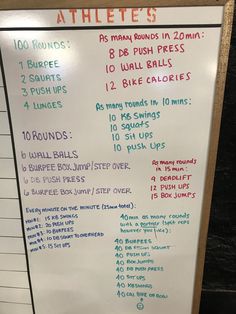 ATHLETE'S
100 ROUNDS:
1 BURPEE
2 SQUATS
3 PUSH UPS
4 LUNGES
10 ROUNDS:
6 WALL BALLS
6 BURPEE BOX JUMP/STEP OVER
6 DB PUSH PRESS
6 BURPEE BOX JUMP/STEP OVER
EVERY MINUTE ON THE MINUTE (25min total):
min#1: 15 KB SWINGS
min#2: 20 PUSH UPS
min#3: 10 BURPEES
min#4: 10 DB GROUND TO OVERHEAD
min#5: 15 SIT UPS
AS MANY ROUNDS IN 20 min:
8 DB PUSH PRESS
10 WALL BALLS
12 BIKE CALORIES
As many rounds in 10 mins:
10 KB Swings
10 Squats
10 Sit Ups
10 Push Ups
As many rounds in
15 min:
9 DEADLIFT
12 PUSH UPS
15 BOX JUMPS
40 min as many rounds
with a partner (split reps
however you like):
40 BURPEES
40 DB SQUAT
40 PUSH UPS
40 BOX JUMPS
40 DB PUSH PRESS
40 SIT UPS
40 KB SWINGS
40 CAL BIKE OR ROW